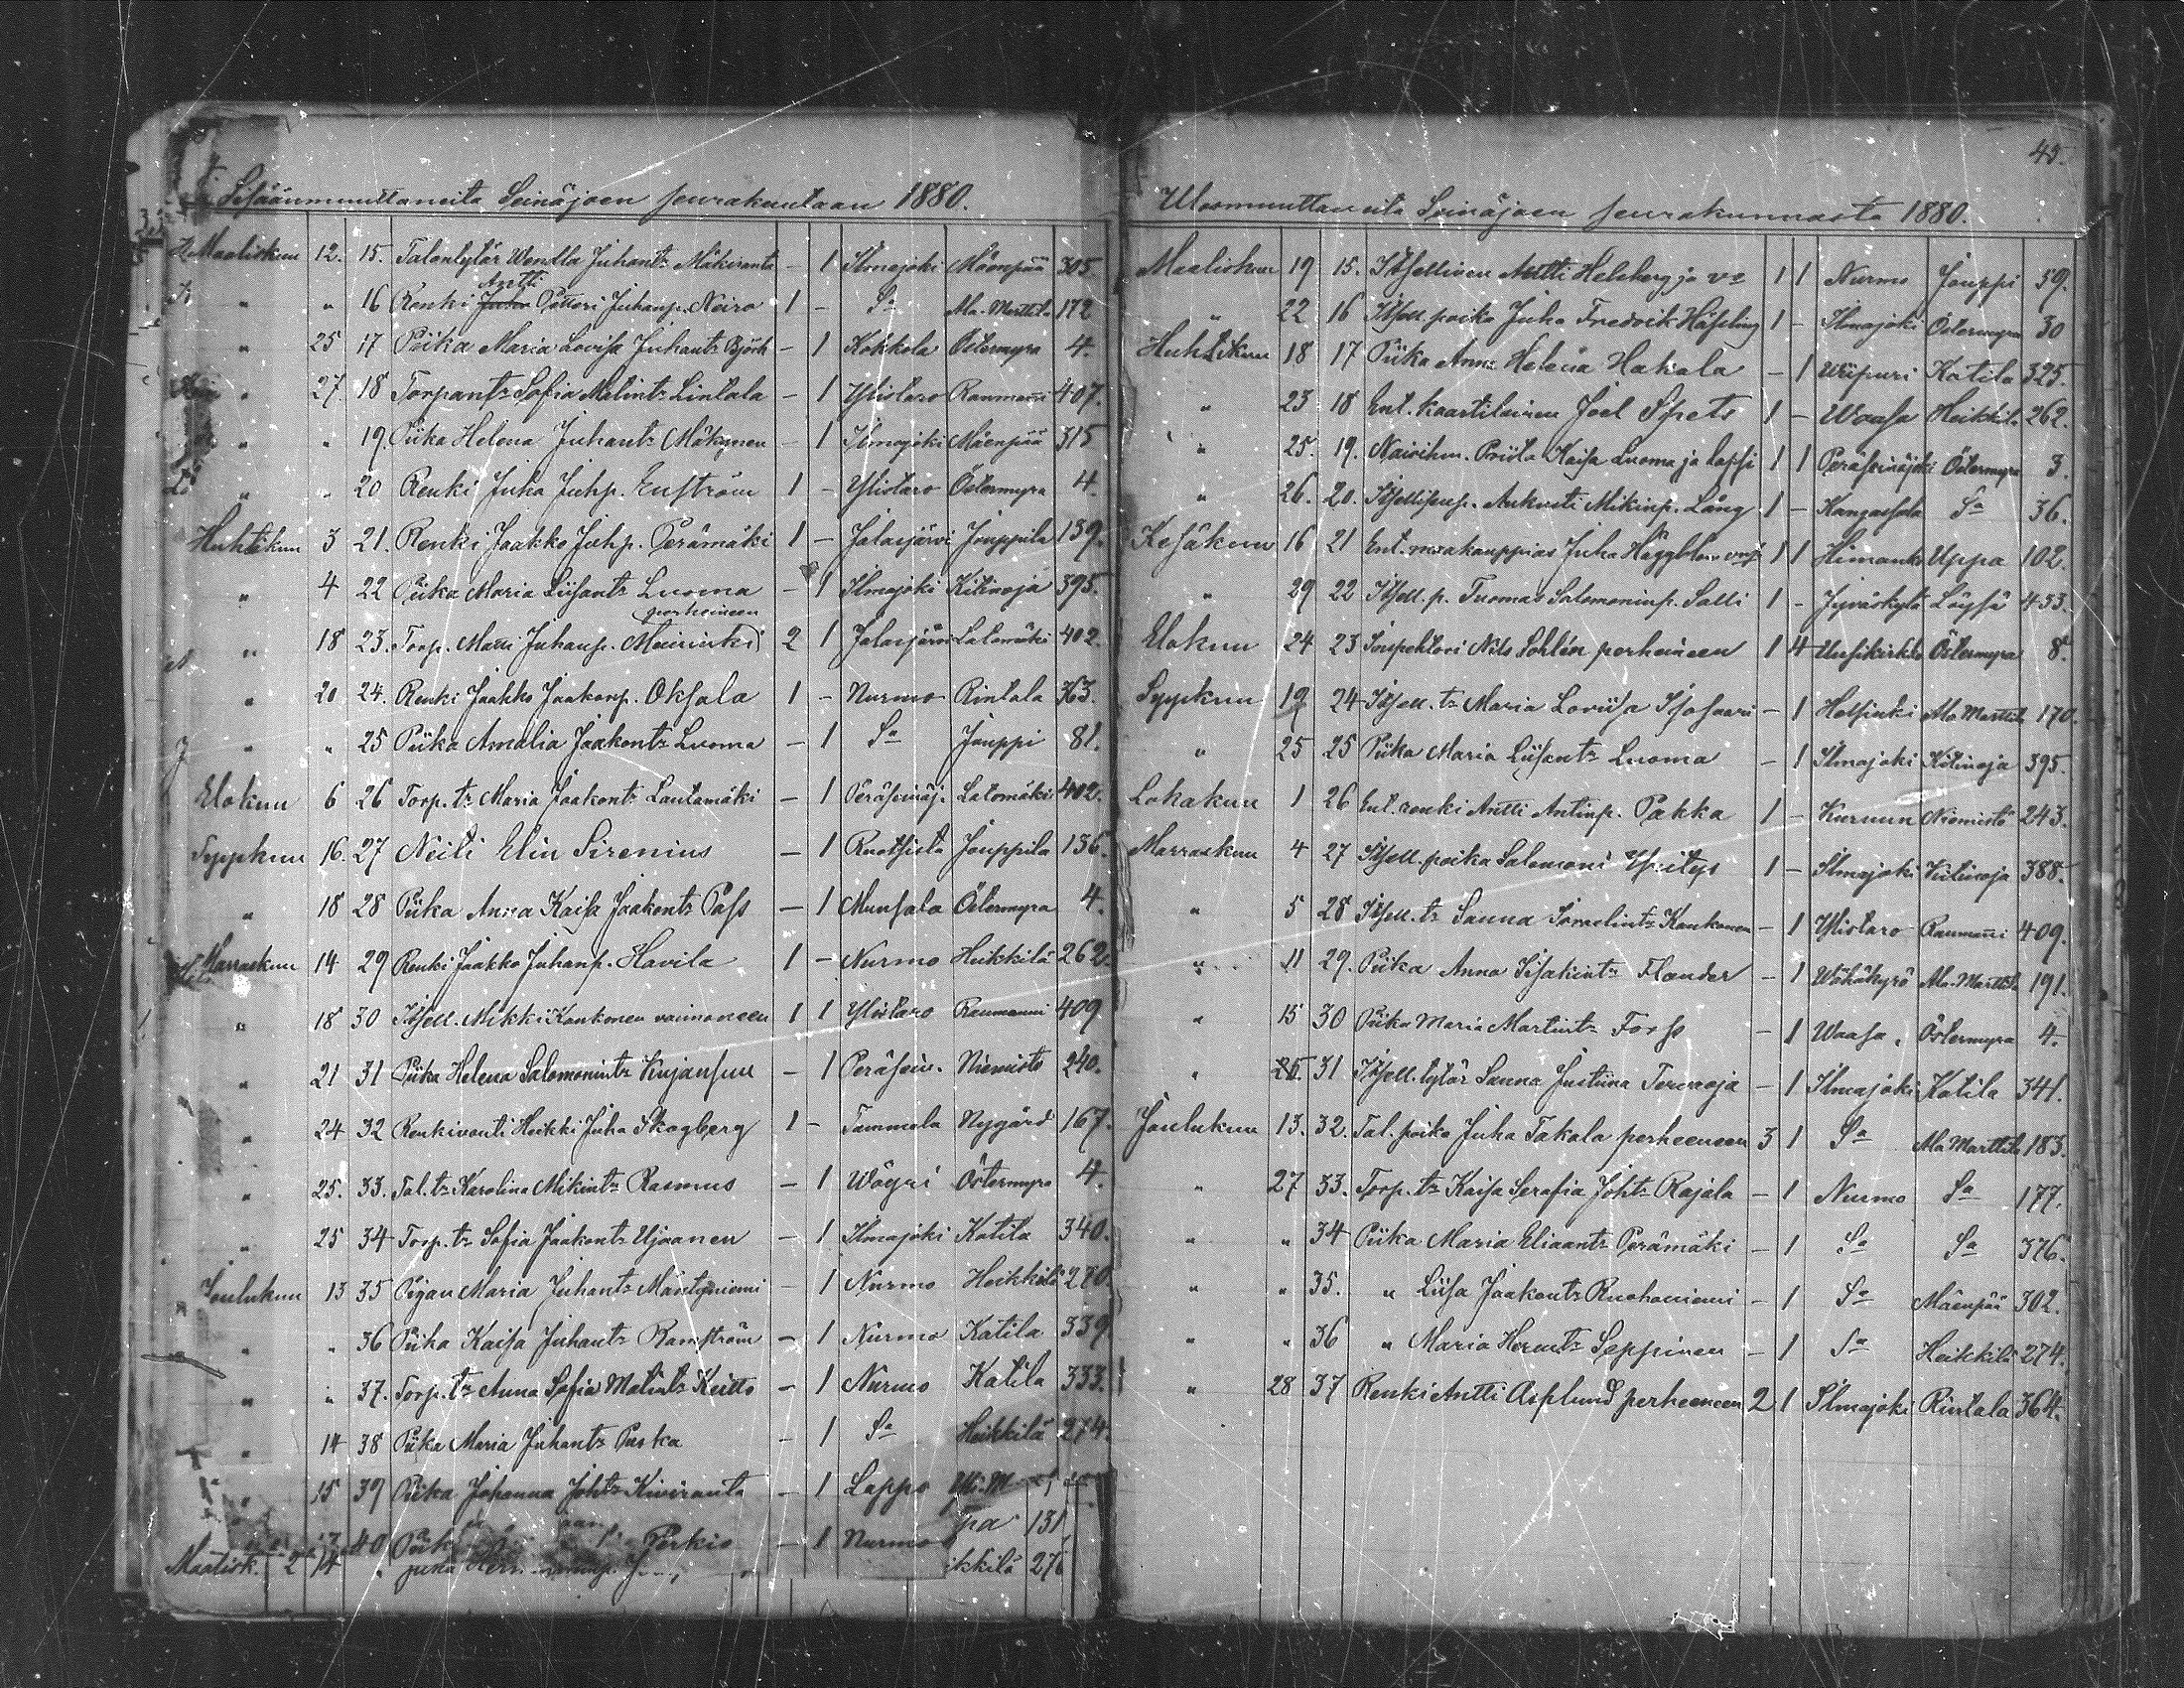 Sisäänmuuttaneita Seinäjoen seurakuntaan 1880.
Maaliskuu 12. 15. Talontytär Wendla Juhantr Mäkiranta - 1 Ilmajoki Mäenpää 305.
Antti
" " 16 Renki Juha Petteri Juhanp. Neiro 1 - Sa Ala-Marttila 172
" 25 17 Piika Maria Lovisa Juhantr Björk - 1 Kokkola Östermyra 4.
" 27. 18 Torpantr Sofia Matintr Lintala - 1 Ylistaro Raumanni 407.
" " 19. Piika Helena Juhantr Mäkynen - 1 Ilmajoki Mäenpää 315
" " 20 Renki Juha Juhp. Enström 1 - Ylistaro Östermyra 4.
Huhtikuu 3 21. Renki Jaakko Juhp. Perämäki 1 - Jalasjärvi Jouppila 139.
" 4 22 Piika Maria Liisantr Luoma - 1 Ilmajoki Kitinoja 395.
perheineen
" 18 23. Torp. Matti Juhanp. 2 1 Jalasjärvi Latomäki 402.
" 20 24. Renki Jaakko Jaakonp. Oksala 1 - Nurmo Rintala 363.
" " 25 Piika Amalia Jaakontr Luoma - 1 Sa Jouppi 81.
Elokuu 6 26 Torp. tr Maria Jaakontr Lautamäki - 1 Peräseinäj. Latomäki 402.
Syyskuu 16. 27 Neiti Elin Sirenius - 1 Ruotsista Jouppila 136.
" 18 28 Piika Anna Kaisa Jaakontr Pass - 1 Munsala Östermyra 4.
Marraskuu 14 29 Renki Jaakko Juhanp. Havila 1 - Nurmo Heikkilä 262.
" 18 30 Itsell. Mikki Kankonen vaimoneen 1 1 Ylistaro Raumanni 409
" 21 31 Piika Helena Salomonintr Kujansuu - 1 Peräsein. Niemistö 240.
" 24 32 Renkivouti Heikki Juha Skogberg 1 - Tammela Nygård 167.
" 25. 33. Tal. tr Karolina Mikintr Rasmus - 1 Wöyri Östermyra 4.
" 25 34 Torp. tr Sofia Jaakontr Ujaanen - 1 Ilmajoki Katila 340.
Joulukuu 13 35 Pigan Maria Juhantr Mäntyniemi - 1 Nurmo Heikkilä 270.
" " 36 Piika Kaisa Juhantr Ramström - 1 Nurmo Katila 339
" " 37. Torp. tr Anna Sofia Matintr Keitto - 1 Nurmo Katila 333.
" 14 38 Piika Maria Juhantr Puska - 1 Sa Heikkilä 274.
" 15 39 Piika Johanna Johtr Kiviranta - 1 Lappo
40 Perkio - 1 Nurmo 131
Maalisk. 2 14 ikkilä 276
45.
Ulosmuuttaneita Seinäjoen seurakunnasta 1880.
Maaliskuu 19 15. Itsellinen Antti Helsberg ja vo 1 1 Nurmo Jouppi 59.
" 22 16 Itsell. poika Juha Fredrik Häseling 1 - Ilmajoki Östermyra 30
Huhtikuu 18 17 Piika Anna Helena Hakala - 1 Wiipuri Katila 325.
" 23 18 Ent. kaartilainen Joel Spets 1 - Waasa Heikkil. 262.
" 25. 19. Priita Kaisa Luoma ja lapsi 1 1 Peräseinäjoki Östermyra 3.
" 26. 20. Aukusti Mikinp. Lång 1 - Kangasala Sa 36.
Kesäkuu 16 21 Ent. maakauppias Juha Häggblom 1 1 Himanka Uppa 102.
" 29 22 Itsell. p. Tuomas Salomoninp. Salli 1 - Jyväskylä Löysä 433.
Elokuu 24 23 Inspehtori Nils Sohlén perheineen 1 4 Uusikirkko Östermyra 8.
Syyskuu 19 24 Itsell. tr Maria Loviisa Isosaari - 1 Helsinki Ala Marttil 170.
" 25 25 Piika Maria Liisantr Luoma - 1 Ilmajoki Kitinoja 395.
Lokakuu 1 26 Ent. renki Antti Antinp. Pakka 1 - Kuruun Niemistö 243.
Marraskuu 4 27 Itsell. poika Salomoni Yritys 1 - Ilmajoki Kitinoja 388.
" 5 28 Itsell. tr Sanna Kankonen - 1 Ylistaro Raumanni 409.
" 11 29. Piika Anna Iisakintr Flander - 1 Wähäkyrö Ala-Marttila 191.
" 15 30 Piika Maria Martintr Forss - 1 Waasa. Östermyra 4.
" 26. 31 Itsell. tytär Sanna Justiina Tervaoja - 1 Ilmajoki Katila 341.
Joulukuu 13. 32. Tal. poika Juha Takala perheeneen 3 1 Sa Ala Marttila 183.
" 27 33. Torp. tr Kaisa Serafia Johtr Rajala - 1 Nurmo Sa 177.
" " 34 Piika Maria Eliaantr Perämäki - 1 Sa Sa 376.
" " 35. " Liisa Jaakontr Ruohoniemi - 1 Sa Mäenpää 302.
" " 36 " Maria Hermtr Seppinen - 1 Sa Heikkilä 274.
" 28 37 Renki Antti Asplund perheeneen 2 1 Ilmajoki Rintala 364.